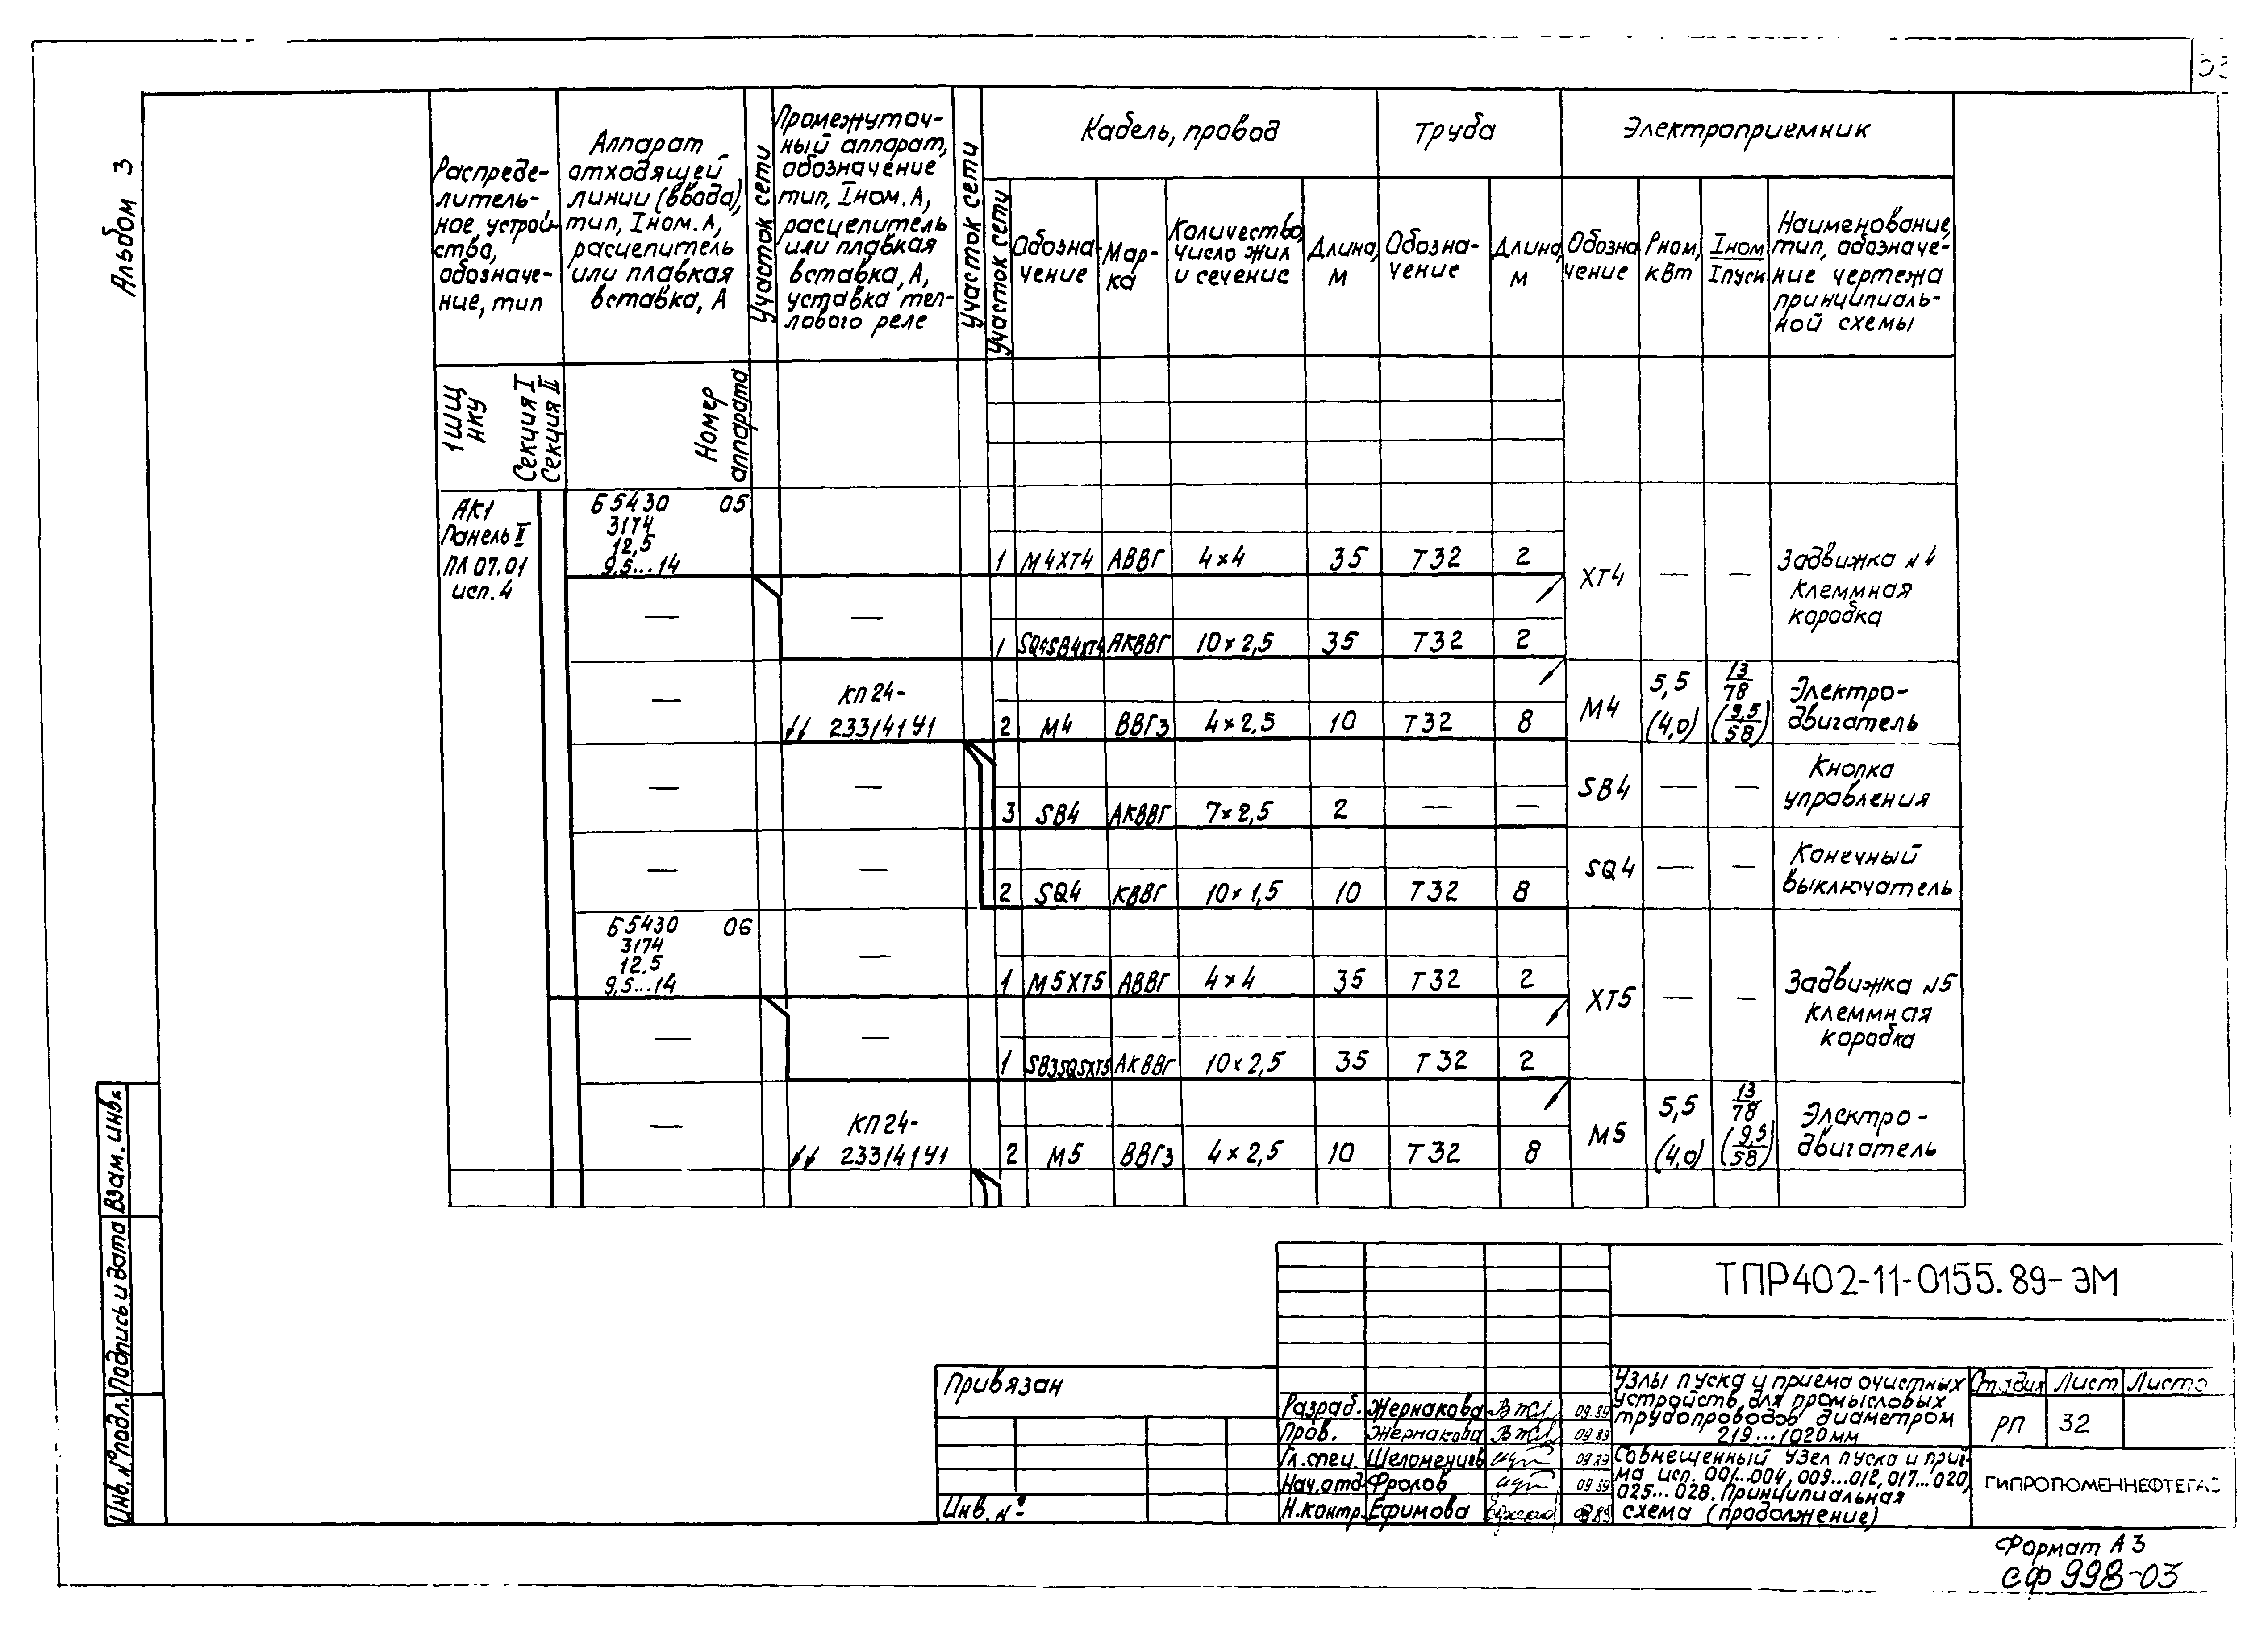 Альбом 3
Распреде-
литель-
ное устрой-
ство,
обозначе-
ние, тип
Аппарат
отходящей
линии (ввода),
тип, Iном. А,
расцепитель
или плавкая
вставка, А
Участок сети
Промежуточ-
ный аппарат,
обозначение
тип, Iном. А,
расцепитель
или плавкая
вставка, А,
уставка теп-
лового реле
Участок сети
Кабель, провод
Труба
Электроприемник
Участок сети
Обозна-
чение
Мар-
ка
Количество,
число жил
и сечение
Длина,
м
Обозна-
чение
Длина,
м
Обозна
чение
Рном,
кВт
Iном
Iпуск
Наименование,
тип, обозначе-
ние чертежа
принципиаль-
ной схемы
1ЩЩ
НКУ
Секция I
Секция II
Номер
аппарата
АК1
Панель II
ПЛ 07.01
исп. 4
Б5430 05
3174
12,5
9,5...14
1 М4ХТ4 АВВГ 4×4 35 Т32 2
ХТ4 — —
Задвижка №4
Клеммная
коробка
— —
1 SQ4SB4XT4 АКВВГ 10×2,5 35 Т32 2
—
КП24-
233141У1
2 М4 ВВГз 4×2,5 10 Т32 8
М4
5,5
(4,0)
13
78
(9,5
58)
Электро-
двигатель
— —
3 SB4 АКВВГ 7×2,5 2 — —
SB4 — —
Кнопка
управления
— —
2 SQ4 КВВГ 10×1,5 10 Т32 8
SQ4 — —
Конечный
выключатель
Б5430 06
3174
12.5
9,5...14
—
1 М5ХТ5 АВВГ 4×4 35 Т32 2
ХТ5 — —
Задвижка №5
клеммная
коробка
— —
1 SB3SQ5XT5 АКВВГ 10×2,5 35 Т32 2
—
КП24-
233141У1
2 М5 ВВГз 4×2,5 10 Т32 8
М5
5,5
(4,0)
13
78
(9,5
58)
Электро-
двигатель
Взам. инв.
Подпись и дата
Инв. № подл.
ТПР402-11-0155.89-ЭМ
Привязан
Инв. №
Разраб. Жернакова 09.89
Пров. Жернакова 09.89
Гл. спец. Шеломенцев 09.89
Нач. отд Фролов 09.89
Н. контр. Ефимова 09.89
Узлы пуска и приема очистных
устройств для промысловых
трубопроводов диаметром
219...1020мм
Стадия Лист Листо
РП 32
Совмещенный узел пуска и прие-
ма исп. 001...004, 009...012, 017...020,
025...028. Принципиальная
схема (продолжение)
ГИПРОТЮМЕННЕФТЕГАЗ
Формат А3
СФ 998-03